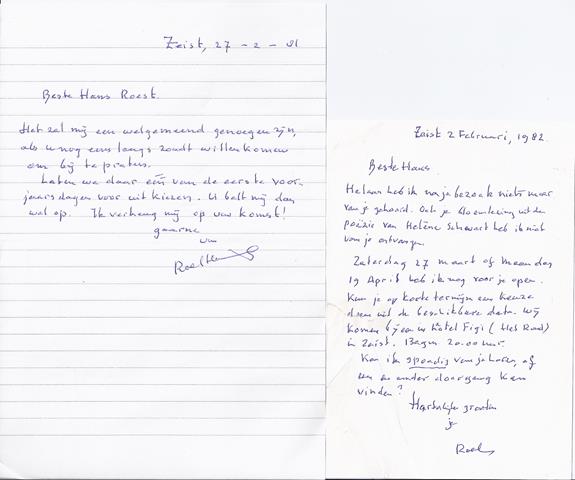 Zeist, 27 - 2 - 81
Beste Hans Roest.
Het zal mij een welgemeend genoegen zijn,
als u nog eens langs zoudt willen komen
om bij te praten.
Laten we daar één van de eerste voor-
jaarsdagen voor uit kiezen. U belt mij dan
wel op. Ik verheug mij op uw komst!
gaarne
uw
Zeist 2 Februari, 1982.
Beste Hans
Helaas heb ik na je bezoek niets meer
van je gehoord. Ook je bloemlezing uit de
poëzie van Helène Schwart heb ik niet
van je ontvangen.
Zaterdag 27 maart of maandag
19 April heb ik nog voor je open.
Kun je op korte termijn een keuze
doen uit de beschikbare data. Wij
komen bijeen in hotel Figi (Het Rond)
in Zeist. Begin 20.00 uur.
Kan ik spoedig van je horen, of
een en ander doorgang kan
vinden?
Hartelijke groeten
je
Roel